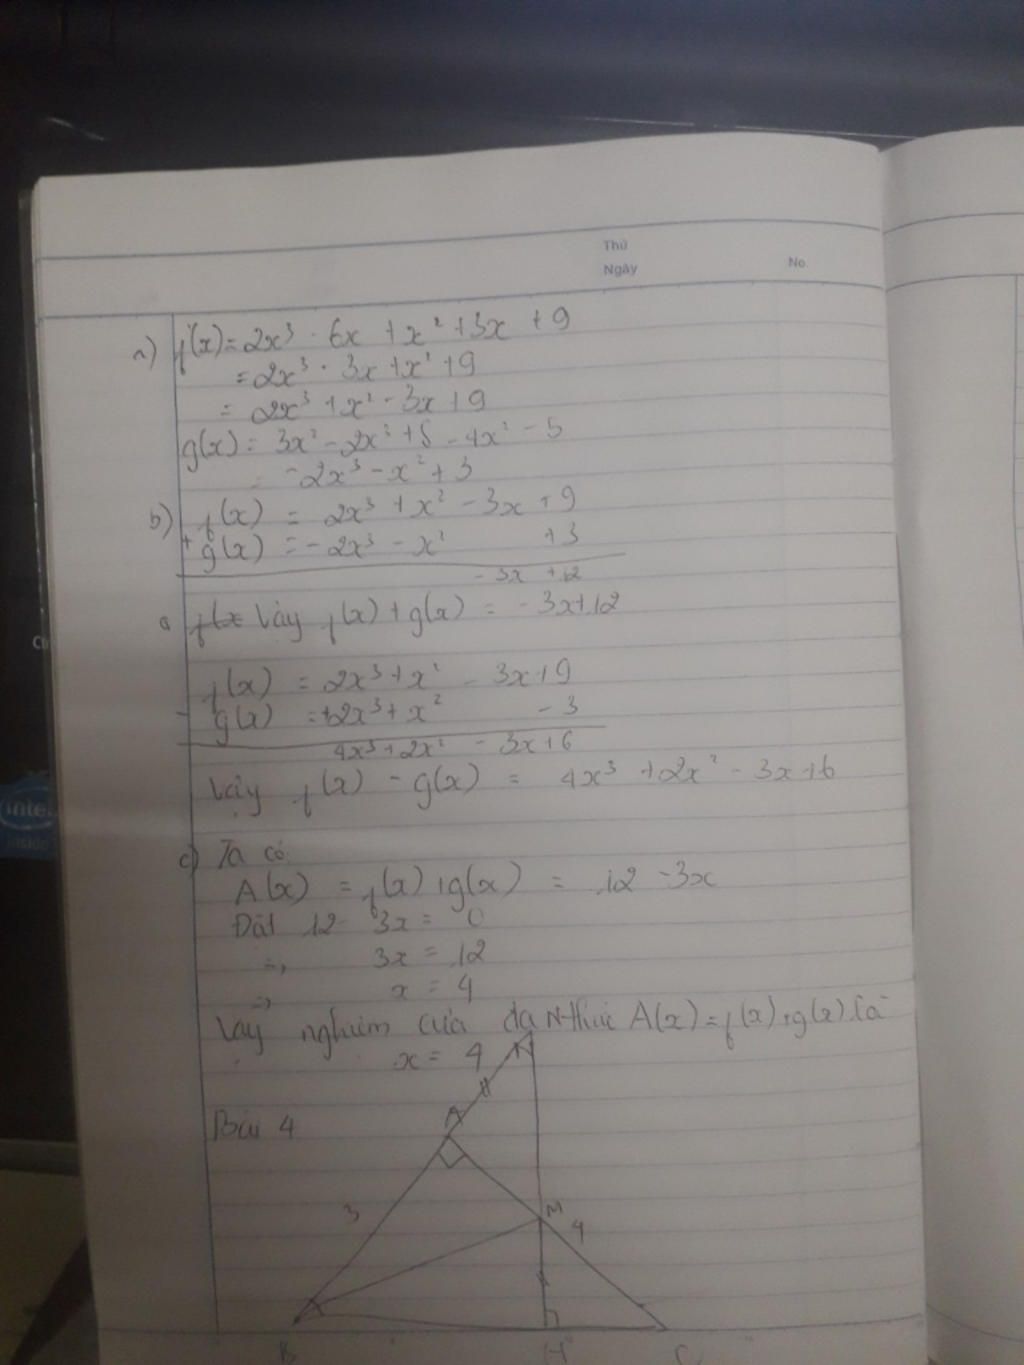 Thứ
Ngày
No.
a) f(x) = 2x³ - 6x + x² + 3x + 9
= 2x³ - 3x + x² + 9
= 2x³ + x² - 3x + 9
g(x) = 3x² - 2x³ + 8 - 4x² - 5
= -2x³ - x² + 3
b) f(x) = 2x³ + x² - 3x + 9
+ g(x) = -2x³ - x² + 3
- 3x + 12
Vậy f(x) + g(x) = -3x + 12
f(x) = 2x³ + x² - 3x + 9
- g(x) = +2x³ + x² - 3
4x³ + 2x² - 3x + 6
Vậy f(x) - g(x) = 4x³ + 2x² - 3x + 6
c) Ta có
A(x) = f(x) + g(x) = 12 - 3x
Đặt 12 - 3x = 0
=> 3x = 12
=> x = 4
Vậy nghiệm của đa thức A(x) = f(x) + g(x) là
x = 4
N
Bài 4
A
3
M
4
B
H
C
intel
inside